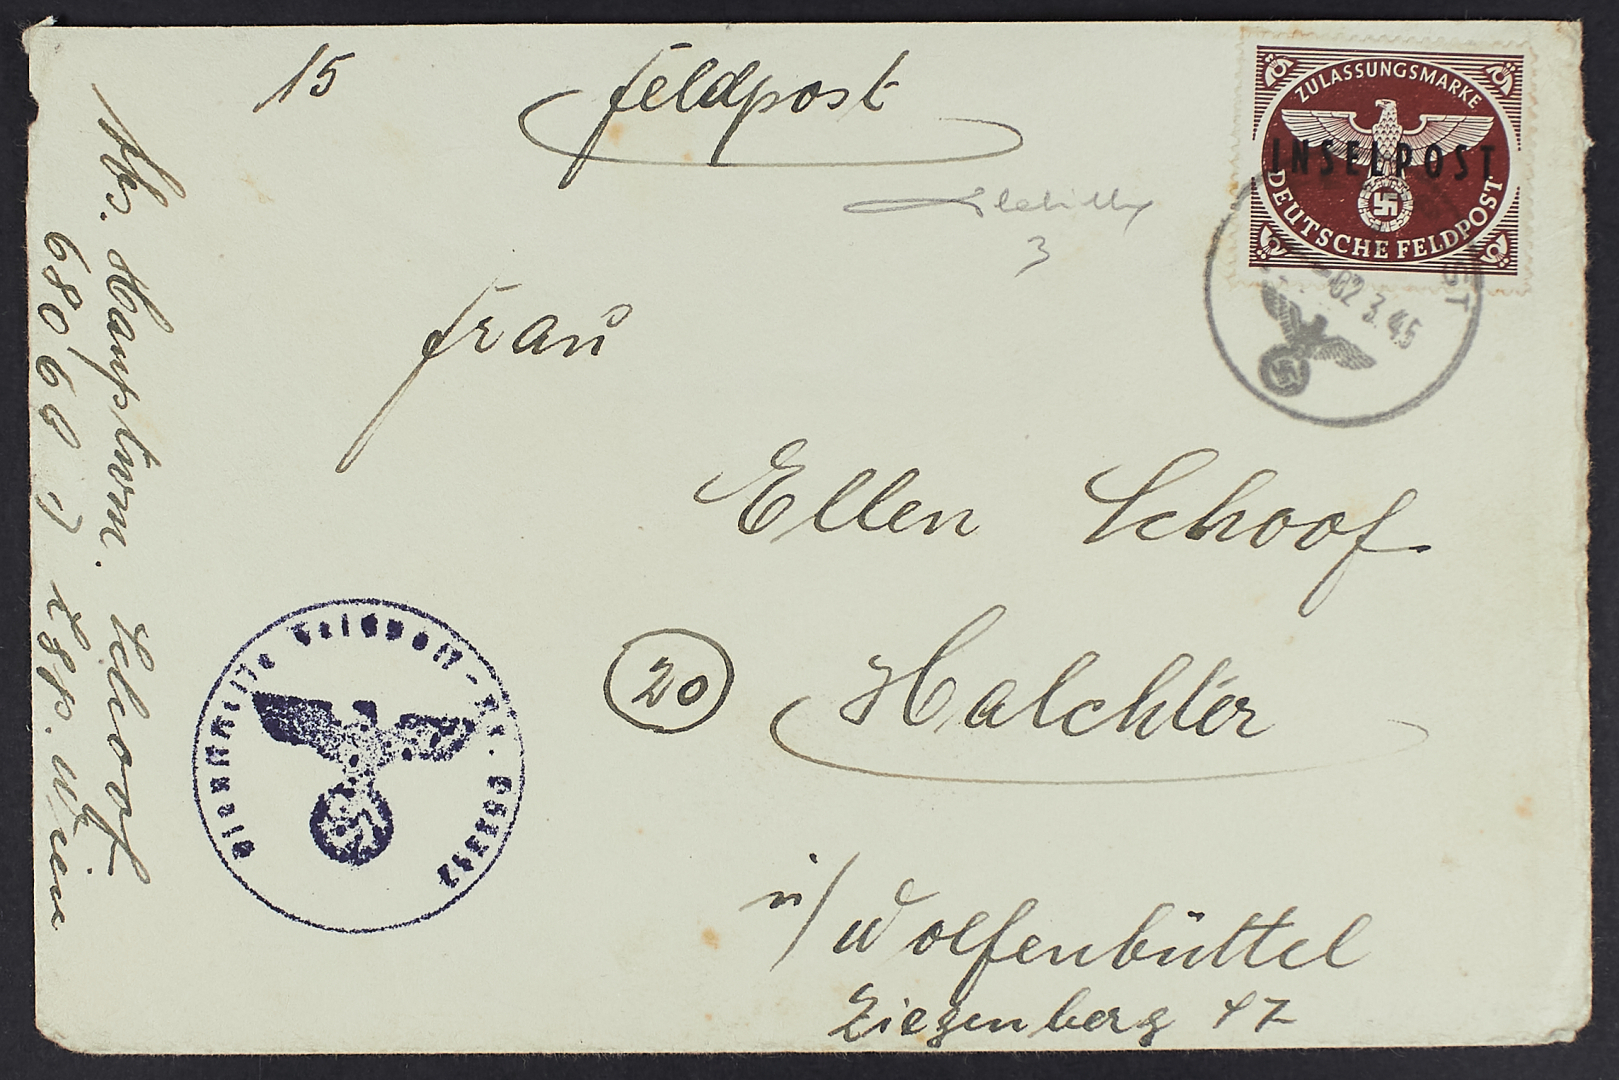 15
Feldpost
ZULASSUNGSMARKE
INSELPOST
DEUTSCHE FELDPOST
3
02.3.45
ST
Frau
Ellen Schoof
20
Halchter
ü/ Wolfenbüttel
Ziegenberg 47
Schoof
68069 Lgp. Wien
Dienststelle Feldpost-Nr.